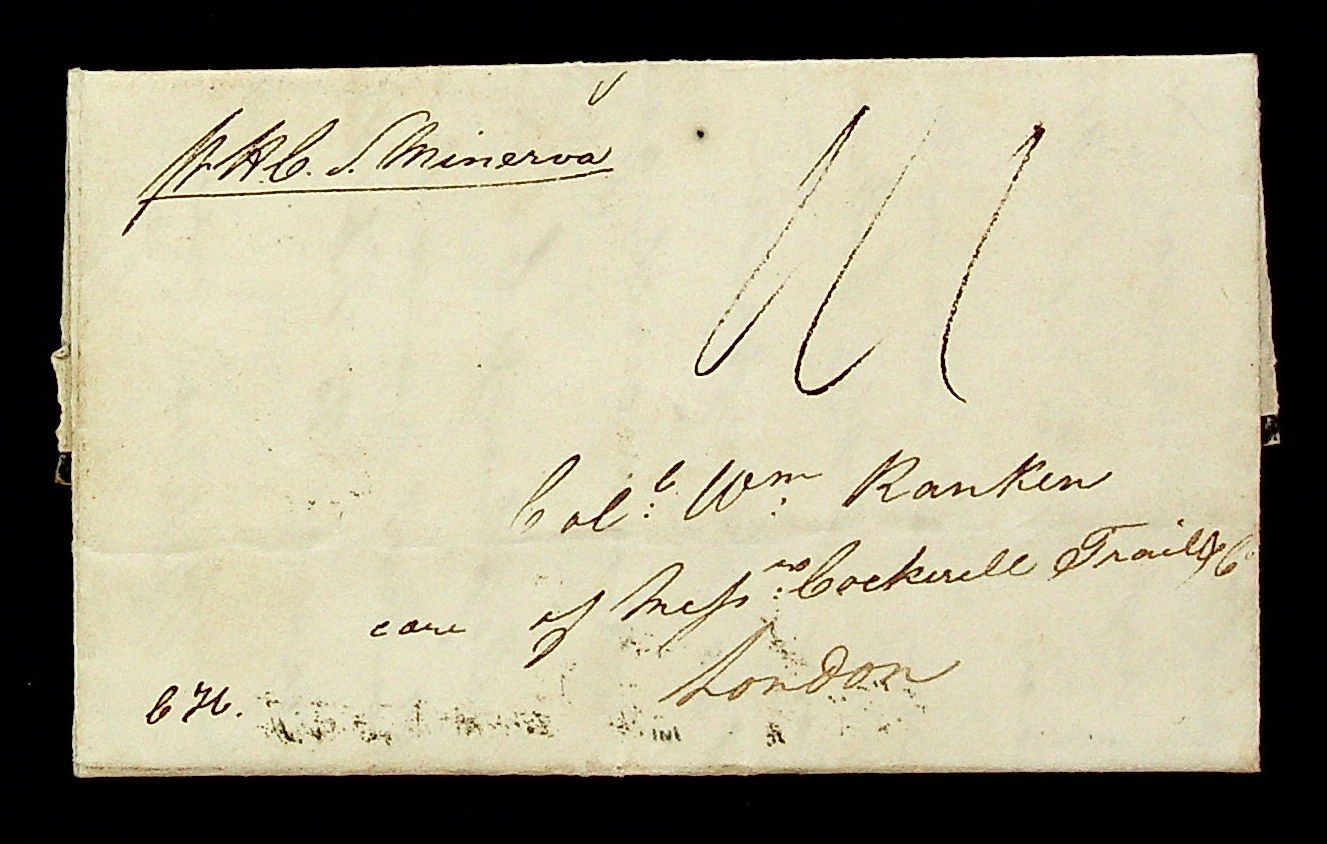 pr H.C. S. Minerva
Coll. Wm. Ranken
care of Messrs. Cockerell Trail & Co
London